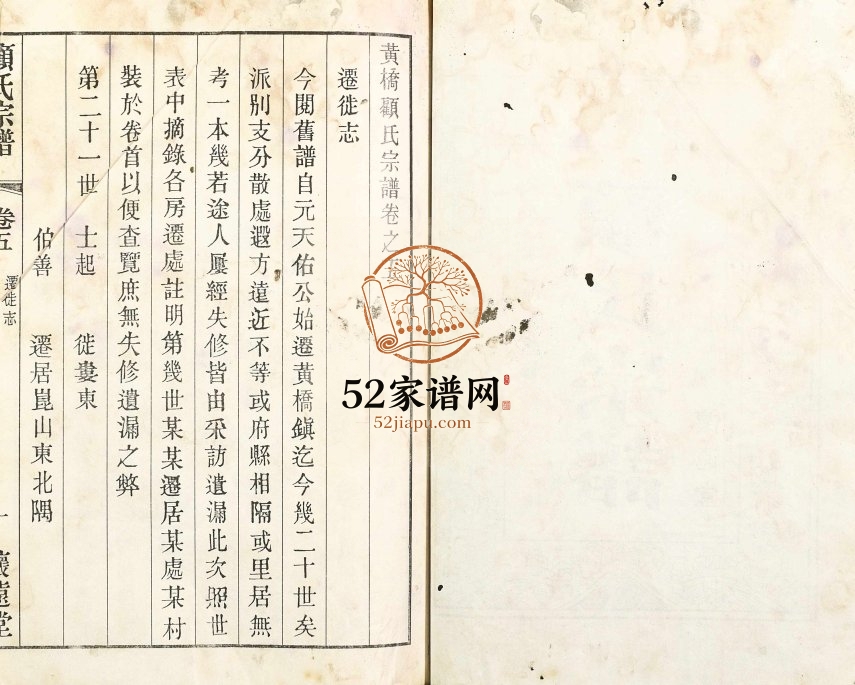 黃橋顧氏宗譜卷之五
遷徙志
今閱舊譜自元天佑公始遷黃橋鎭迄今幾二十世矣
派別支分散處遐方遠近不等或府縣相隔或里居無
考一本幾若途人屢經失修皆由采訪遺漏此次照世
表中摘錄各房遷處註明第幾世某某遷居某處某村
裝於卷首以便查覽庶無失修遺漏之弊
第二十一世 士起 徙婁東
伯善 遷居崑山東北隅
顧氏宗譜 卷五 遷徙志 一 懷遠堂
52家谱网
52jiapu.com